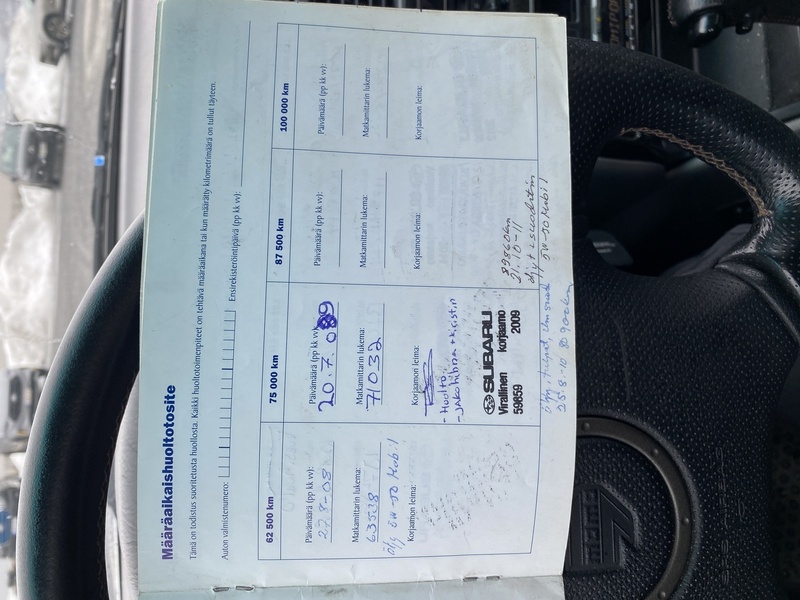 Määräaikaishuoltotosite
Tämä on todistus suoritetusta huollosta. Kaikki huoltotoimenpiteet on tehtävä määräaikana tai kun määrätty kilometrimäärä on tullut täyteen.
Auton valmistenumero:
Ensirekisteröintipäivä (pp kk vv):
62 500 km
Päivämäärä (pp kk vv):
27.8-08
Matkamittarin lukema:
63538
Öljy 5W-50 Mobil 1
Korjaamon leima:
75 000 km
Päivämäärä (pp kk vv):
20.7.09
Matkamittarin lukema:
71032
Korjaamon leima:
- Huolto,
- Jakohihna + kiristin
SUBARU
Virallinen korjaamo
59659 2009
Öljy, tulpat,
25.8.-10 80900km
87 500 km
Päivämäärä (pp kk vv):
Matkamittarin lukema:
Korjaamon leima:
89860km
21.10-11
öljy + suodatin
5W-50 Mobil 1
100 000 km
Päivämäärä (pp kk vv):
Matkamittarin lukema:
Korjaamon leima:
MOMO